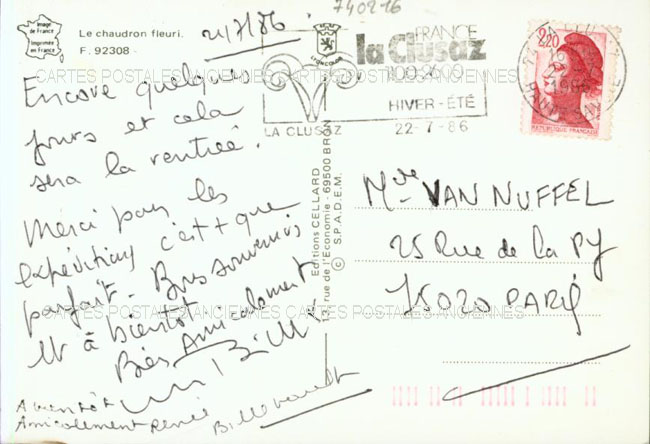 Image
de France
Imprimée
en France
Le chaudron fleuri.
F. 92308
21/7/86
740216
FRANCE
la Clusaz
1100-2600
HIVER-ÉTÉ
22-7-86
LA CLUSAZ
2,20
REPUBLIQUE FRANÇAISE
CARTES POSTALES ANCIENNES
Encore quelques
jours et cela
sera la rentrée.
Merci pour les
expéditions c'est + que
parfait - Bons souvenirs
et à bientôt
Bien Amicalement
A bientôt
Amicalement Renée
Editions CELLARD
13, rue de l'Economie - 69500 BRON
© S.P.A.D.E.M.
VAN NUFFEL
25 Rue de la Py
75020 PARIS
CARTES POSTALES ANCIENNES